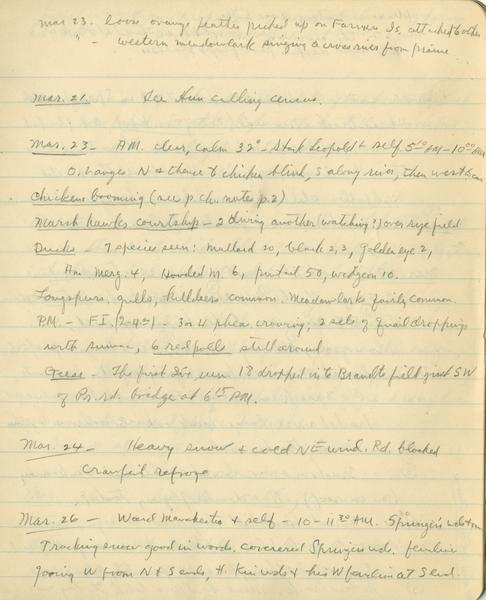 Mar 23. loose orange feather picked up on Farmers Is, attached to other
" - western meadowlark singing across river from prairie
Mar. 21. See Hun calling census.
Mar. 23 - AM. clear, calm 32° - Starker Leopold & self 5:00 AM - 10:00 AM
N & thence to chicken blind, S along river, then west to car
Chickens booming (see p. ch. notes p. 2)
Marsh hawks courtship - 2 diving another (watching?) over rye field
Ducks - 7 species seen: Mallard 20, black 2, 3, Golden eye 2,
Am. Merg. 4, Hooded M. 6, pintail 50, widgeon 10.
Longspurs, gulls, killdeers common. Meadowlarks fairly common.
P.M. - F.I. (2-4) - 3 or 4 pheas. crowing, 2 sets of quail droppings
north sumac, 6 redpolls still around
Geese - The first I've seen 18 dropped into Brandts field just SW
of Pr. rd. bridge at 6:15 PM.
Mar. 24 - Heavy snow & cold NE wind. Rd. blocked
refroze
Mar. 26 - Ward & self - 10 - 11:30 AM.
Tracking snow good in woods. covered wds.
going W from N & S ends, H. wds & his W at S end.